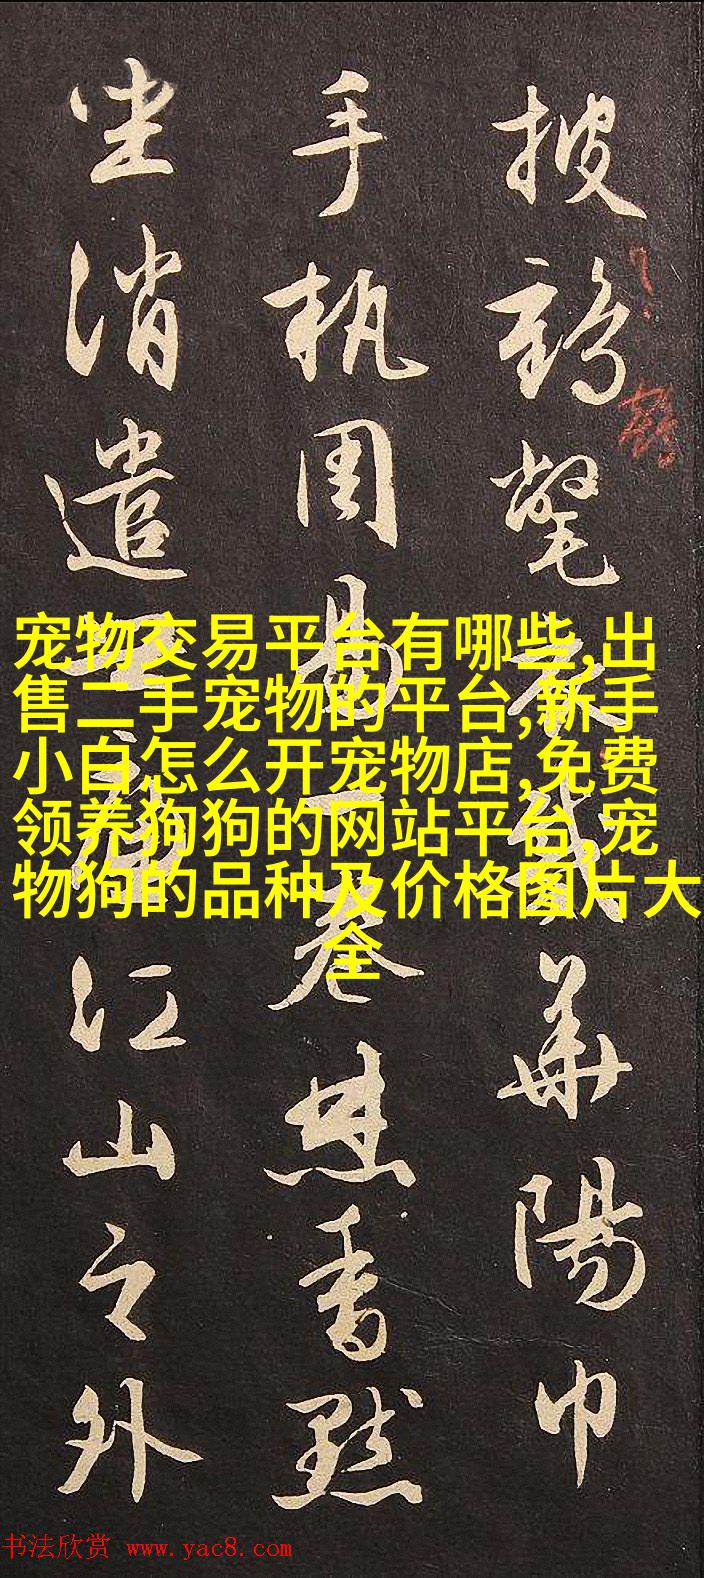 披鹤氅衣戴華陽巾
手执周易一卷焚香默
坐消遣世慮江山之外
鶴
宠物交易平台有哪些,出
售二手宠物的平台,新手
小白怎么开宠物店,免费
领养狗狗的网站平台,宠
物狗的品种及价格图片大
全
书法欣赏 www.yac8.com